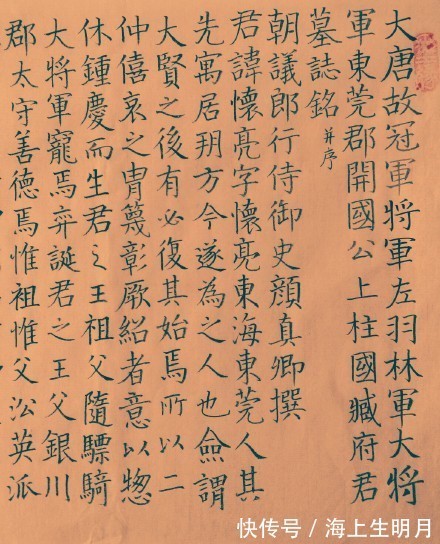 大唐故冠軍將軍左羽林軍大將
軍東莞郡開國公上柱國臧府君
墓誌銘并序
朝議郎行侍御史顏真卿撰
君諱懷亮字懷亮東海東莞人其
先寓居玥方今遂為之人也僉謂
大賢之後有必復其始焉所以二
仲僖哀之胄篾彰厥紹者意以惣
休鍾慶而生君之王祖父隨驃騎
大將軍寵焉弈誕君之王父銀川
郡太守善德焉惟祖惟父沿英派
快传号 / 海上生明月